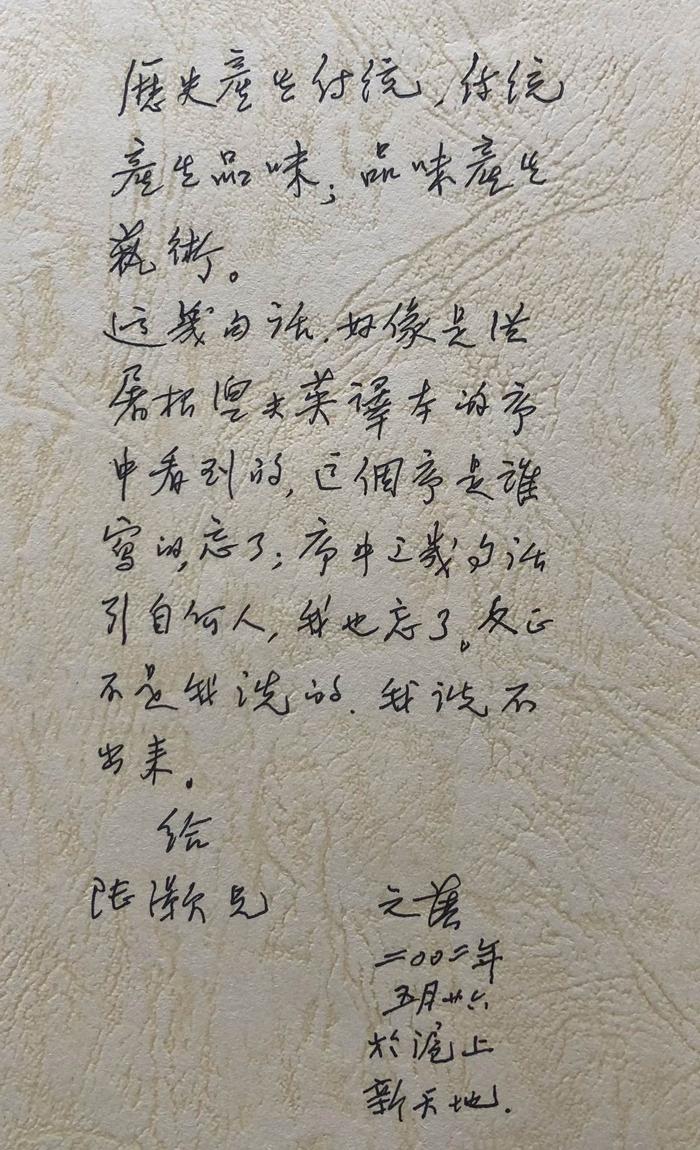 歷史產生传统，传统
產生品味；品味產生
藝術。
这幾句话，好像是從
屠格涅夫英譯本的序
中看到的，这個序是誰
寫的，忘了；序中这幾句话
引自何人，我也忘了。反正
不是我説的，我説不
出来。
给
陆灏兄
元葛
二〇〇二年
五月廿六
於滬上
新天地.